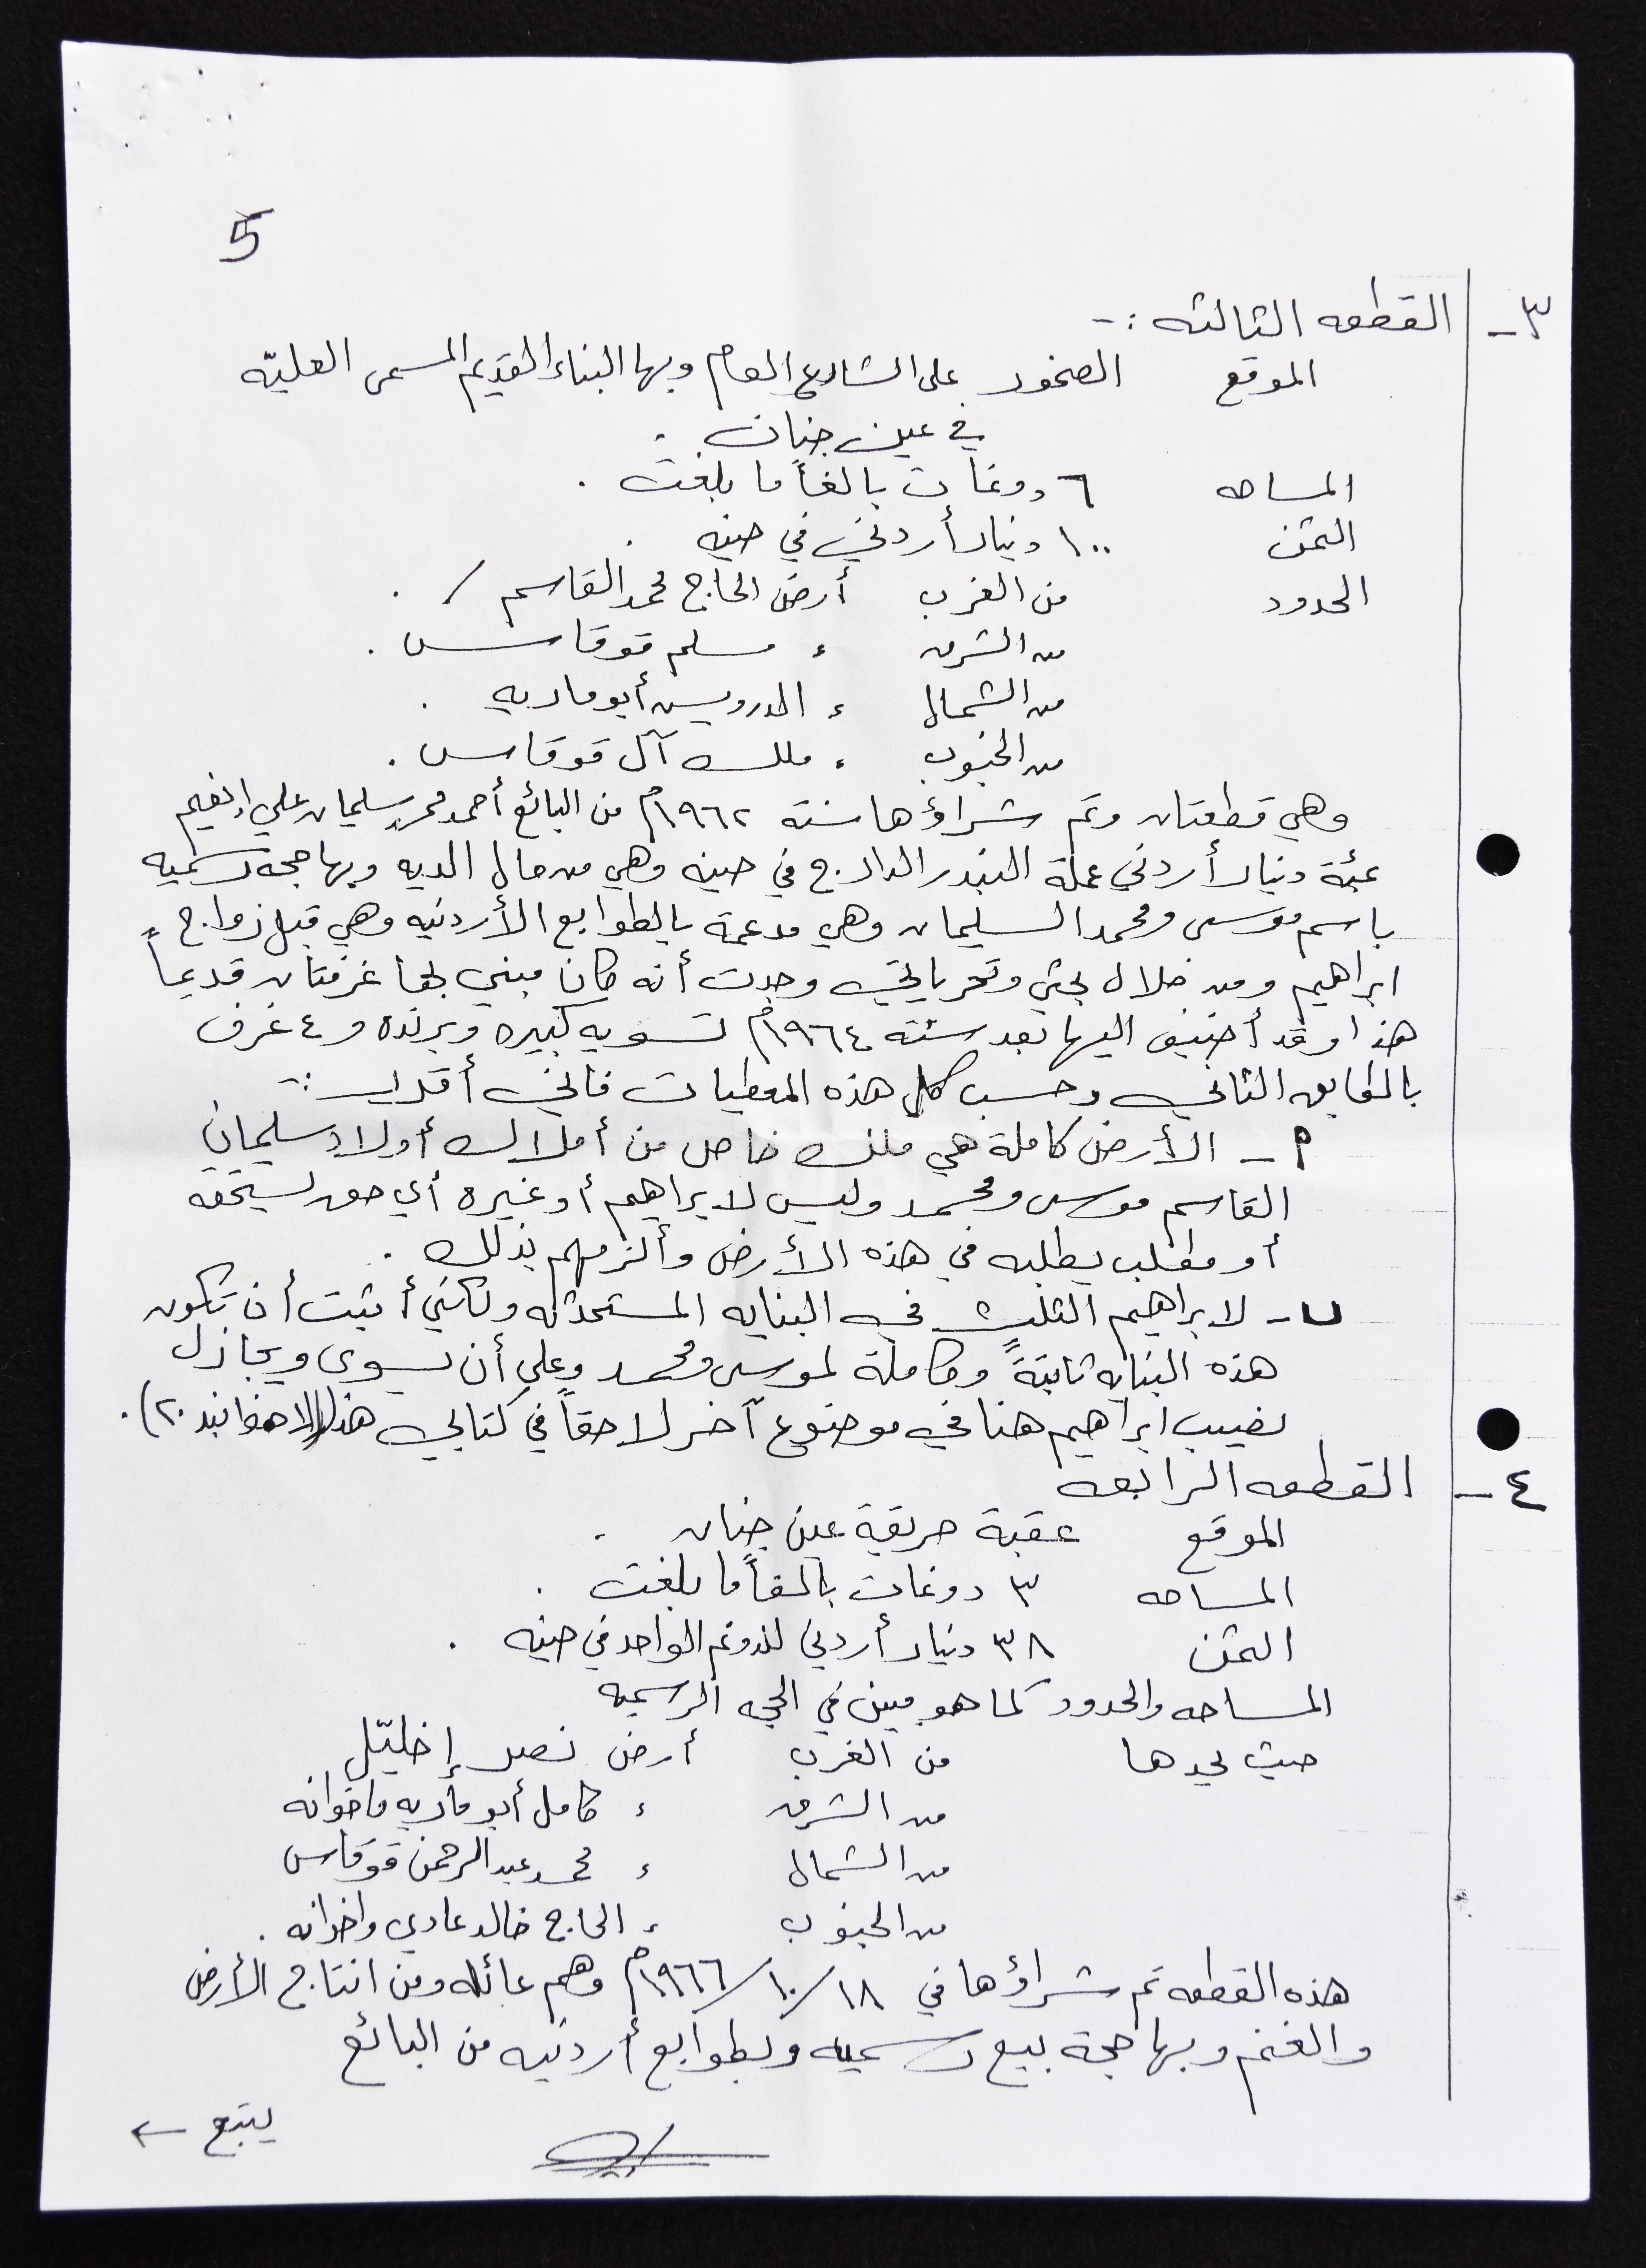 5
٣- القطعه الثالثه :-
الموقع الصخور على الشارع العام وبها البناء القديم المسمى العليّه
في عين جنان .
المساحه ٦ دونمات بالغاً ما بلغت .
الثمن ١٠٠ دينار أردني في حينه .
الحدود من الغرب أرض الحاج محمد القاسم / .
من الشرق ء مسلم قوقاس .
من الشمال ء الدرويس أبو ماريه .
من الجنوب ء ملك آل قوقاس .
وهي قطعتان وتم شراؤها سنة ١٩٦٢م من البائع أحمد محمد سليمان علي إنعيم
بمئة دينار أردني عملة البندر الدارج في حينه وهي من مال الديه وبها حجة رسميه
باسم موسى ومحمد السليمان وهي مدعمة بالطوابع الأردنيه وهي قبل زواج
ابراهيم ومن خلال بحثي وتحرياتي وجدت أنه كان مبني بها غرفتان قديماً
هذا وقد أضيف اليها بعد سنة ١٩٦٤م تسويه كبيره وبرنده و ٤ غرف
بالطابق الثاني وحسب كل هذه المعطيات فاني أقدر :-
أ - الأرض كاملة هي ملك خاص من أملاك أولاد سليمان
القاسم موسى ومحمد وليس لابراهيم أو غيره أي حق يستحقه
أو مطلب يطلبه في هذه الأرض وألزمهم بذلك .
ب- لابراهيم الثلث في البنايه المستحدثه ولكنني أثبت أن تكون
هذه البنايه ثابتةً وكاملة لموسى ومحمد وعلي أن يسوى ويجازل
نصيب ابراهيم هنا في موضوع آخر لاحقاً في كتابي هذا (لاحظوا بند ٢٠) .
٤- القطعه الرابعه
الموقع عقبة حريقة عين جنان .
المساحه ٣ دونمات بالغاً ما بلغت .
الثمن ٣٨ دينار أردني للدونم الواحد في حينه .
المساحه والحدود كما هو مبين في الحجه الرسميه
حيث يحدها من الغرب أرض نصر إخليّل
من الشرق ء كامل أبو ماريه واخوانه
من الشمال ء محمد عبد الرحمن قوقاس
من الجنوب ء الحاج خالد عادي واخوانه .
هذه القطعه تم شراؤها في ١٨/١٠/١٩٦٦م وهم عائله ومن انتاج الأرض
والغنم وبها حجة بيع رسميه وبطوابع أردنيه من البائع
يتبع ←